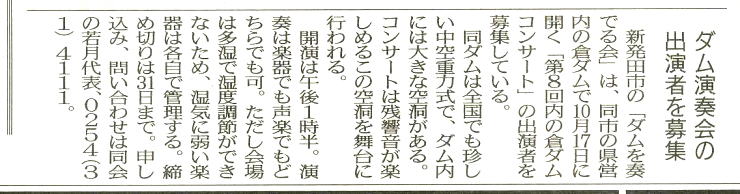 ダム演奏会の
出演者を募集
新発田市の「ダムを奏
でる会」は、同市の県営
内の倉ダムで10月17日に
開く「第8回内の倉ダム
コンサート」の出演者を
募集している。
同ダムは全国でも珍し
い中空重力式で、ダム内
には大きな空洞がある。
コンサートは残響音が楽
しめるこの空洞を舞台に
行われる。
開演は午後1時半。演
奏は楽器でも声楽でもど
ちらでも可。ただし会場
は多湿で湿度調節ができ
ないため、湿気に弱い楽
器は各自で管理する。締
め切りは31日まで。申し
込み、問い合わせは同会
の若月代表、0254(3
1)4111。